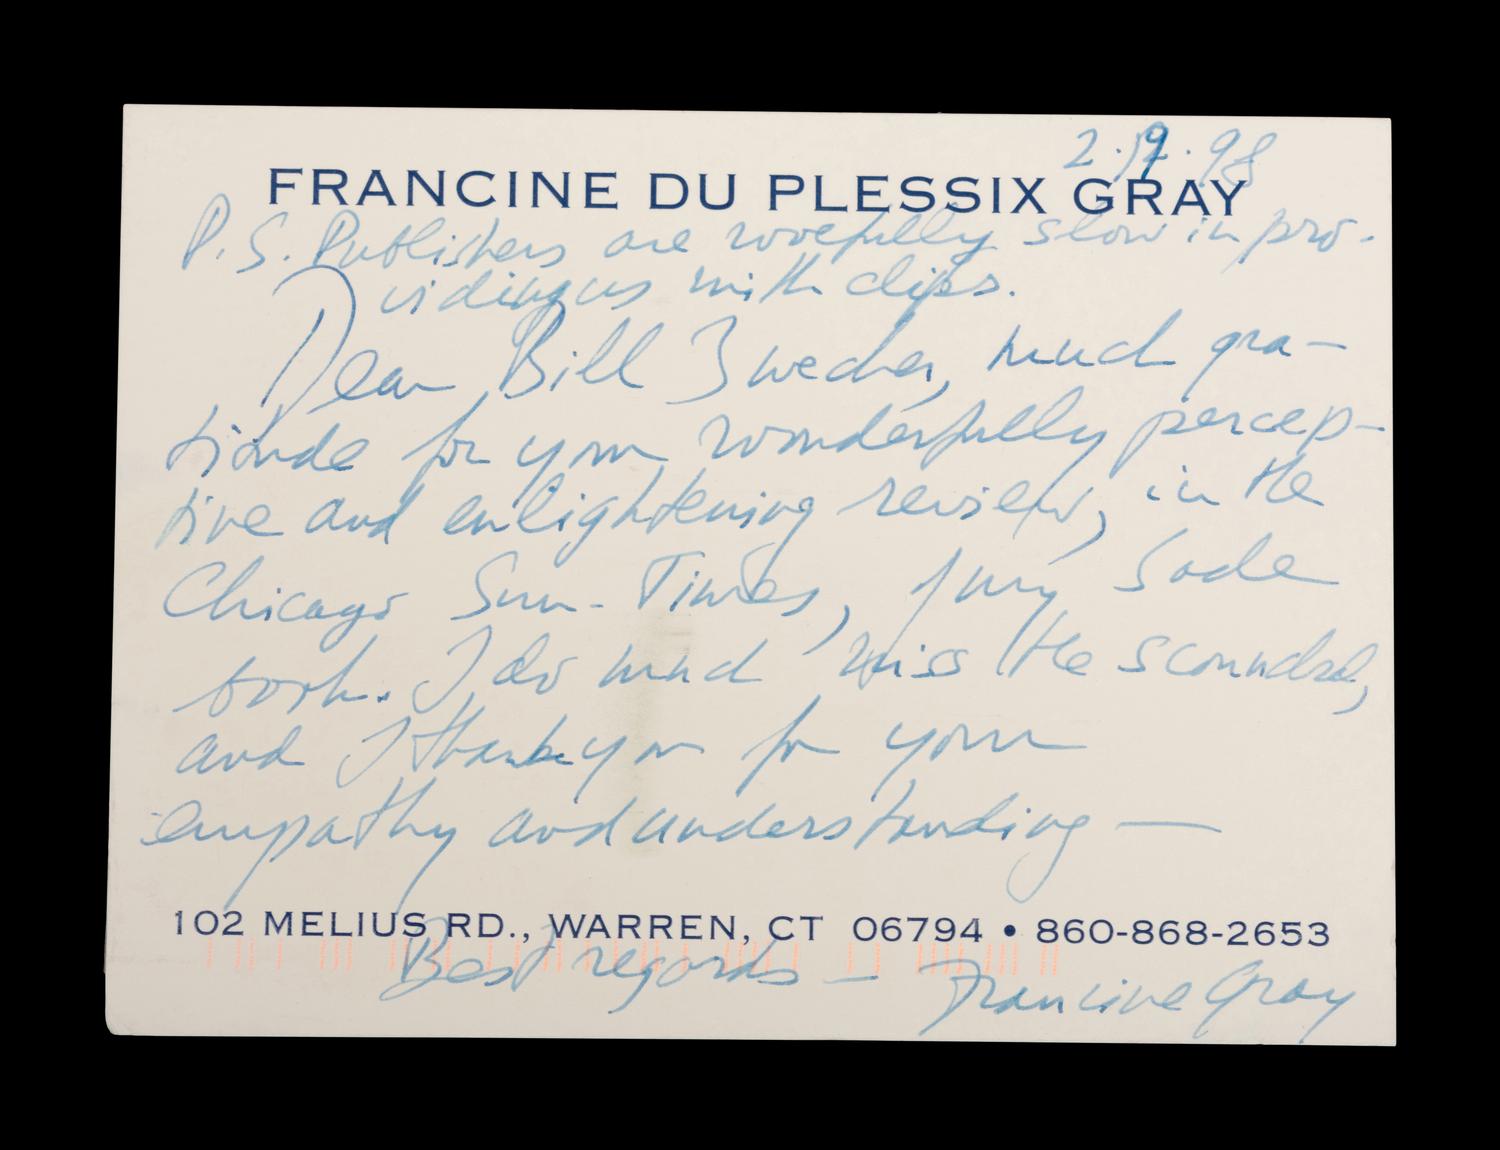 2.19.98
FRANCINE DU PLESSIX GRAY
P.S. Publishers are woefully slow in pro-
viding us with clips.
Dear Bill Zwecker, much gra-
titude for your wonderfully percep-
tive and enlightening review, in the
Chicago Sun-Times, of my Sade
book. I do much miss the scoundrel,
and I thank you for your
empathy and understanding —
102 MELIUS RD., WARREN, CT 06794 • 860-868-2653
Best regards — Francine Gray